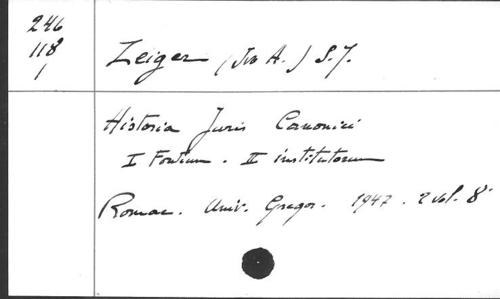 246
118
1
Zeiger (Ivo A.) S.J.
Historia Juris Canonici
I Fontium. II institutorum
Romae. Univ. Gregor. 1947. 2 vol. 8°